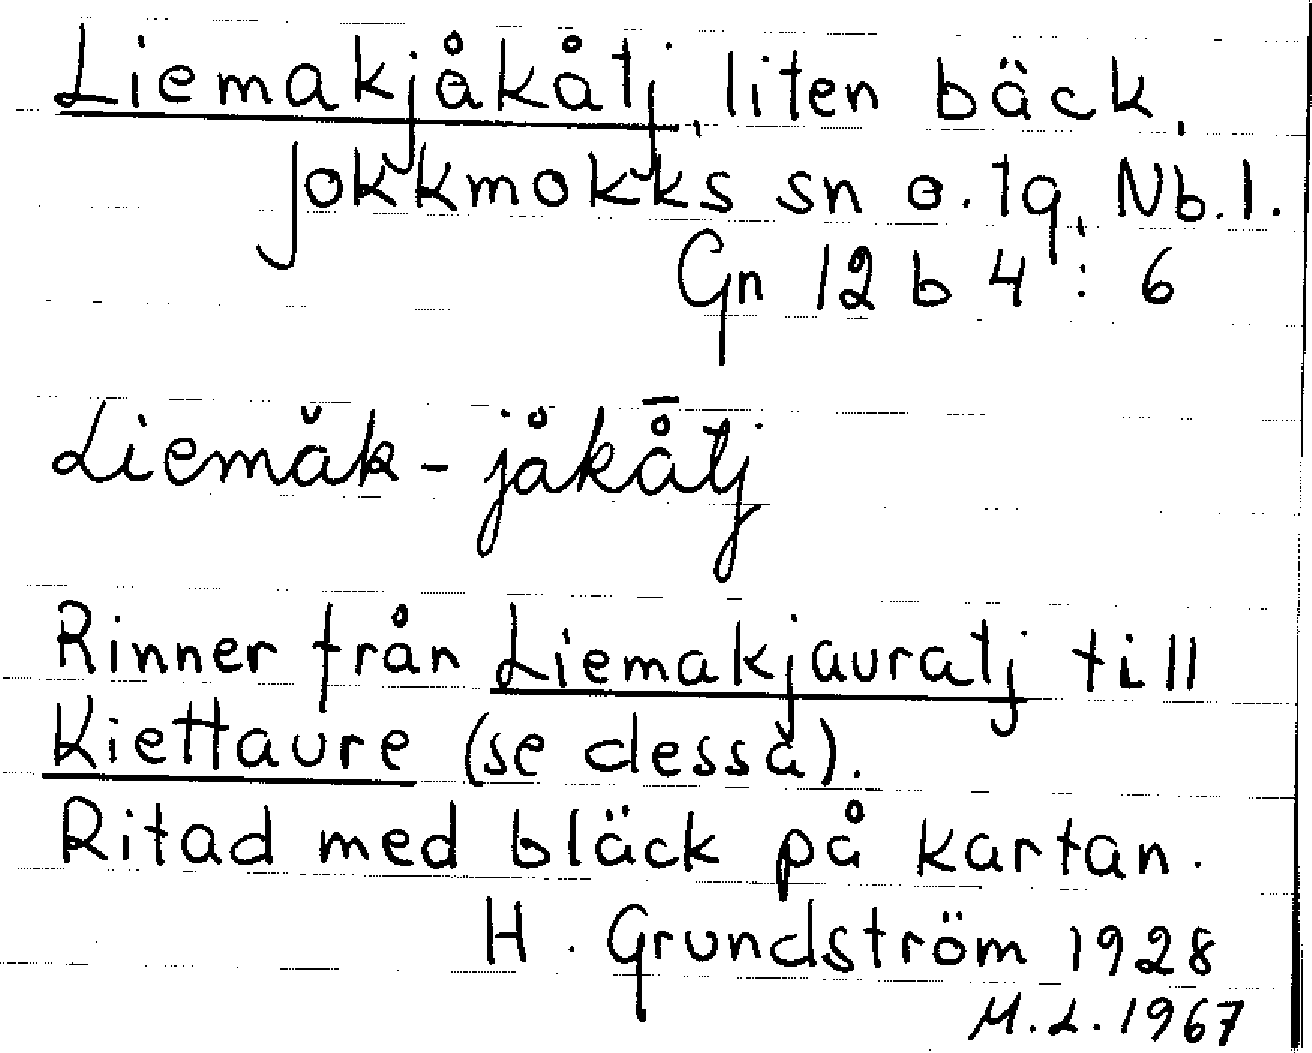 Liemakjåkåtj, liten bäck,
Jokkmokks sn o. tg, Nb. l.
Gn 12 b 4 : 6
Liemăk - jåkå̄tj
Rinner från Liemakjauratj till
Kiettaure (se dessa).
Ritad med bläck på kartan.
H. Grundström 1928
M.L. 1967